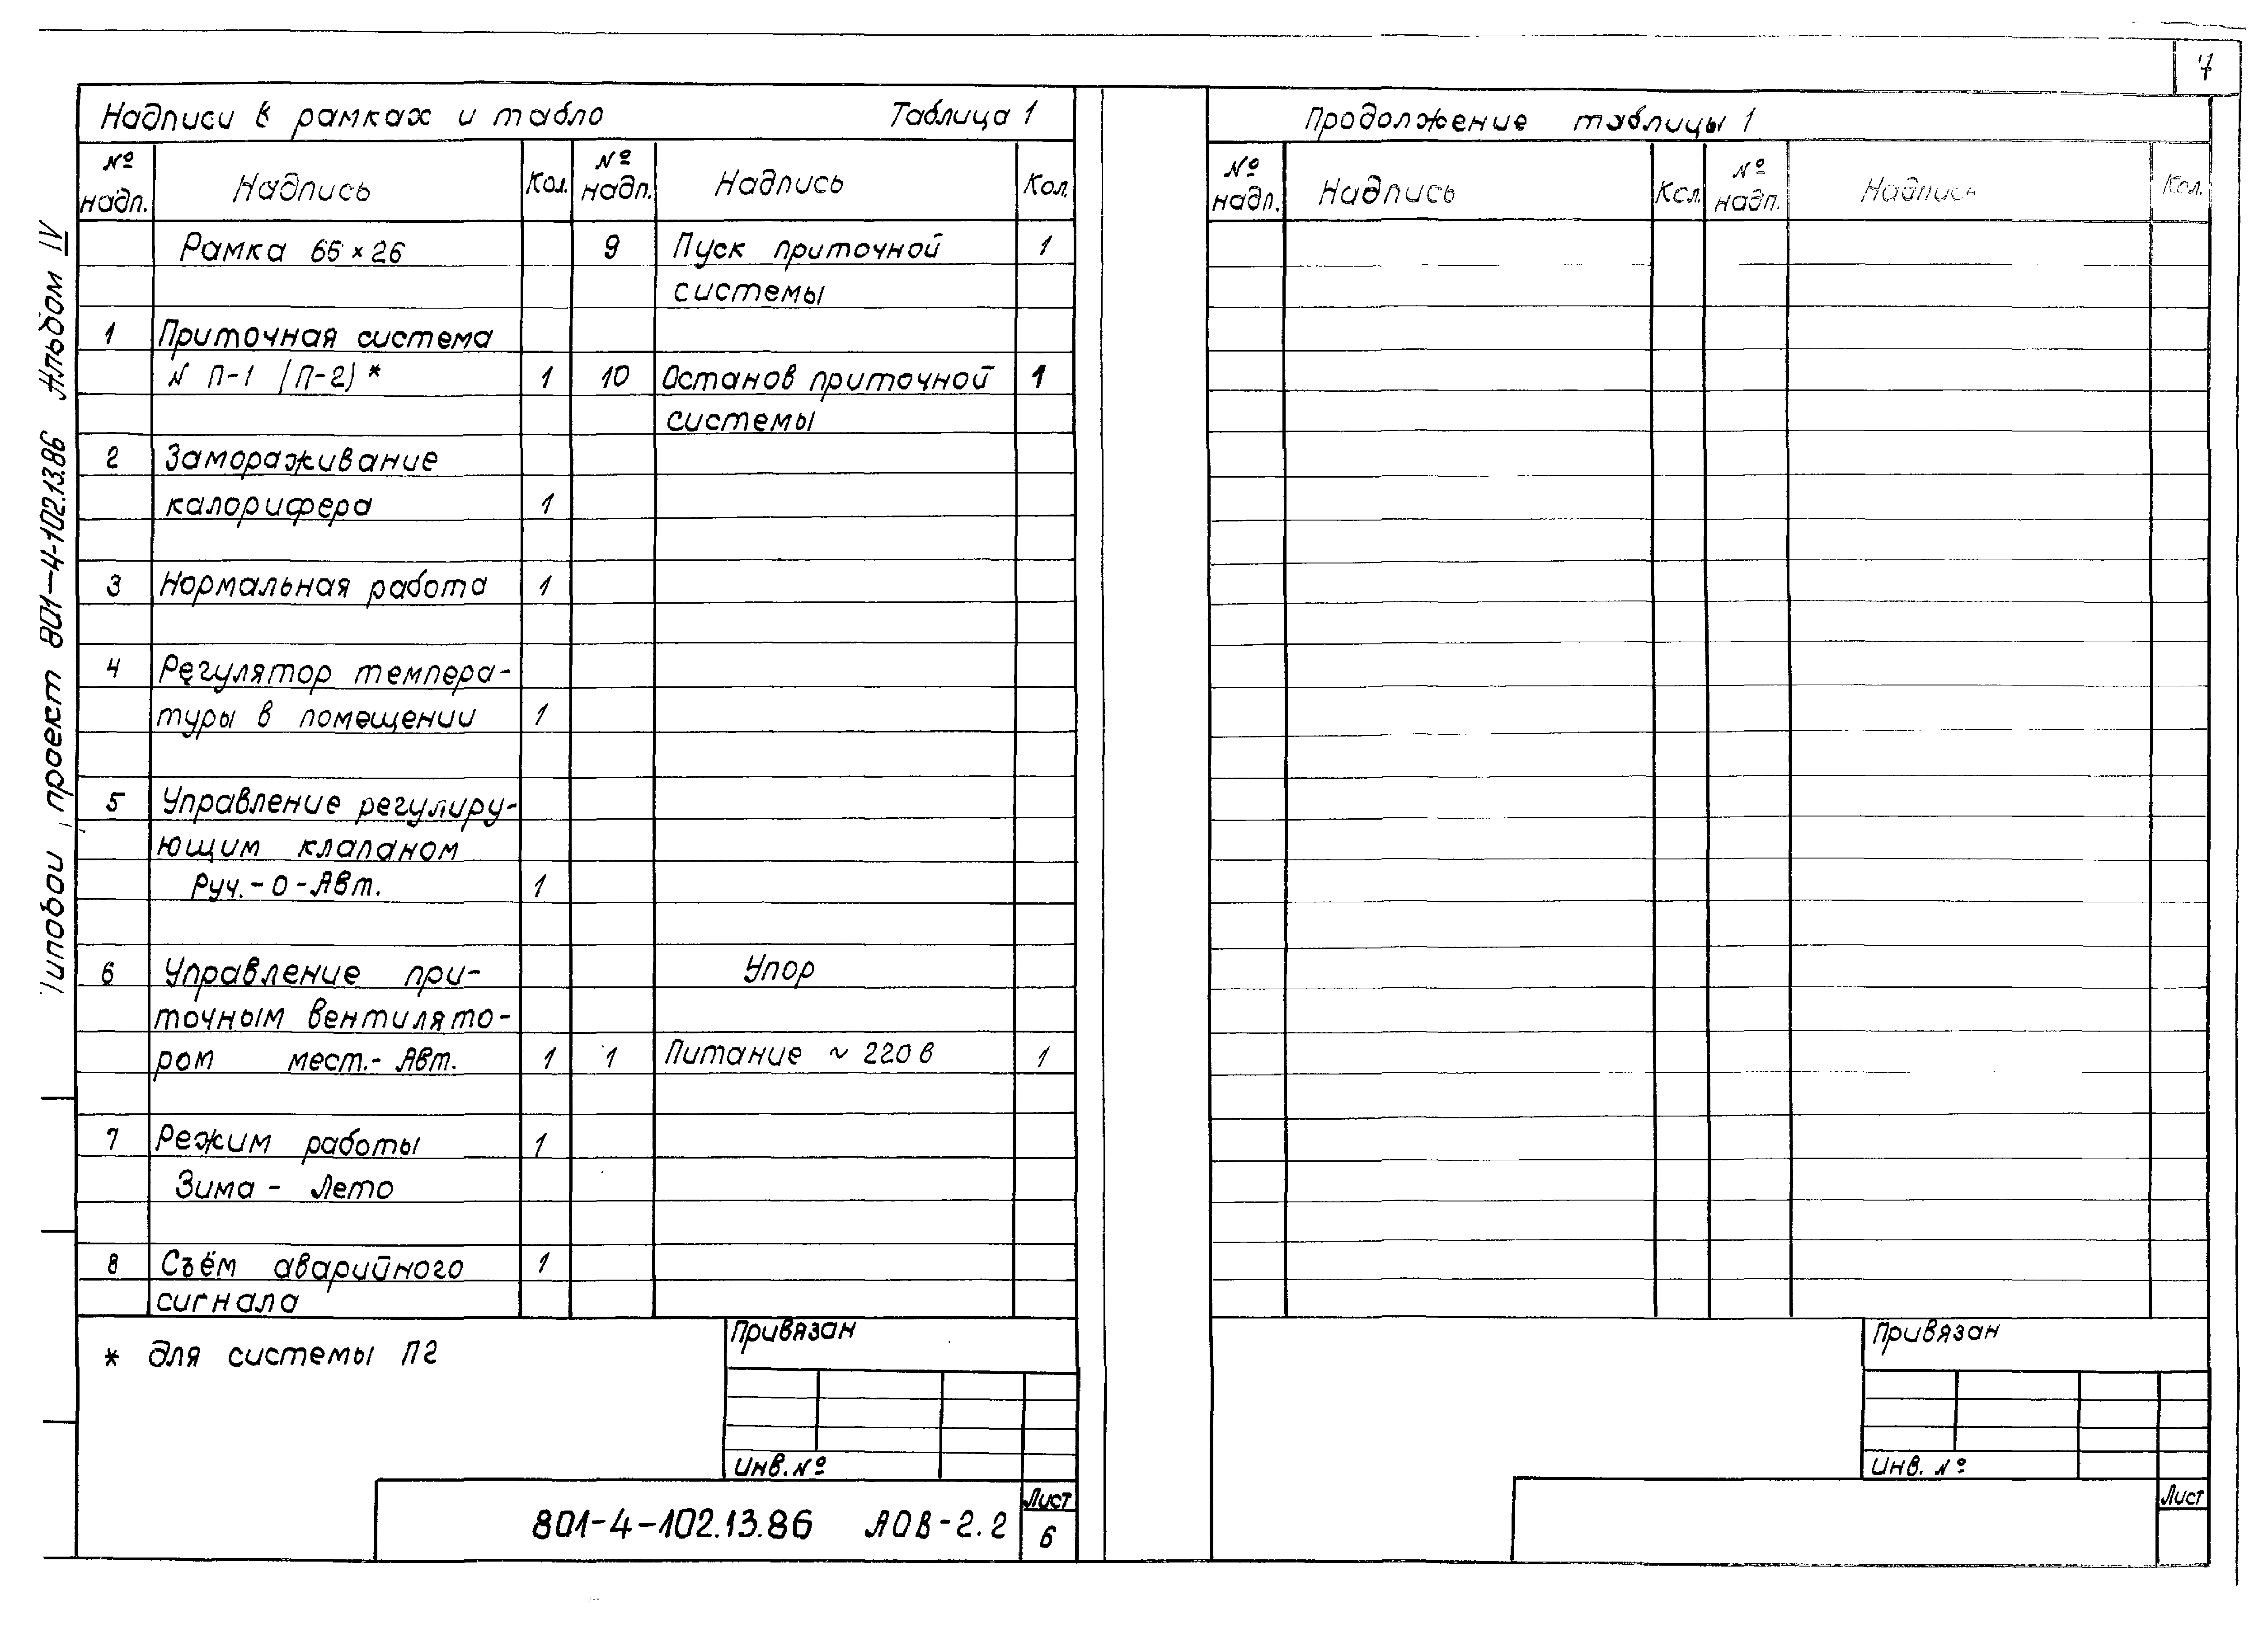 7
Типовой проект 801-4-102.13.86 Альбом IV
Надписи в рамках и табло Таблица 1
№ надп. Надпись Кол. № надп. Надпись Кол.
Рамка 66×26 9 Пуск приточной 1
системы
1 Приточная система
N П-1 (П-2)* 1 10 Останов приточной 1
системы
2 Замораживание
калорифера 1
3 Нормальная работа 1
4 Регулятор темпера-
туры в помещении 1
5 Управление регулиру-
ющим клапаном
Руч.-О-Авт. 1
6 Управление при- Упор
точным вентилято-
ром мест.-Авт. 1 1 Питание ~ 220 в 1
7 Режим работы 1
Зима - Лето
8 Съём аварийного 1
сигнала
* для системы П2
Привязан
Инв. №
801-4-102.13.86 АОВ-2.2
Лист
6
Продолжение таблицы 1
№ надп. Надпись Кол. № надп. Надпись Кол.
Привязан
Инв. №
Лист